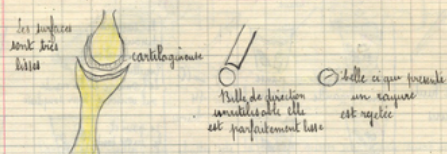 Les surfaces
sont très
lisses
cartilagineuse
Bille de direction
inutilisable elle
est parfaitement lisse
belle ci qui presente
un rayure
est rejetée